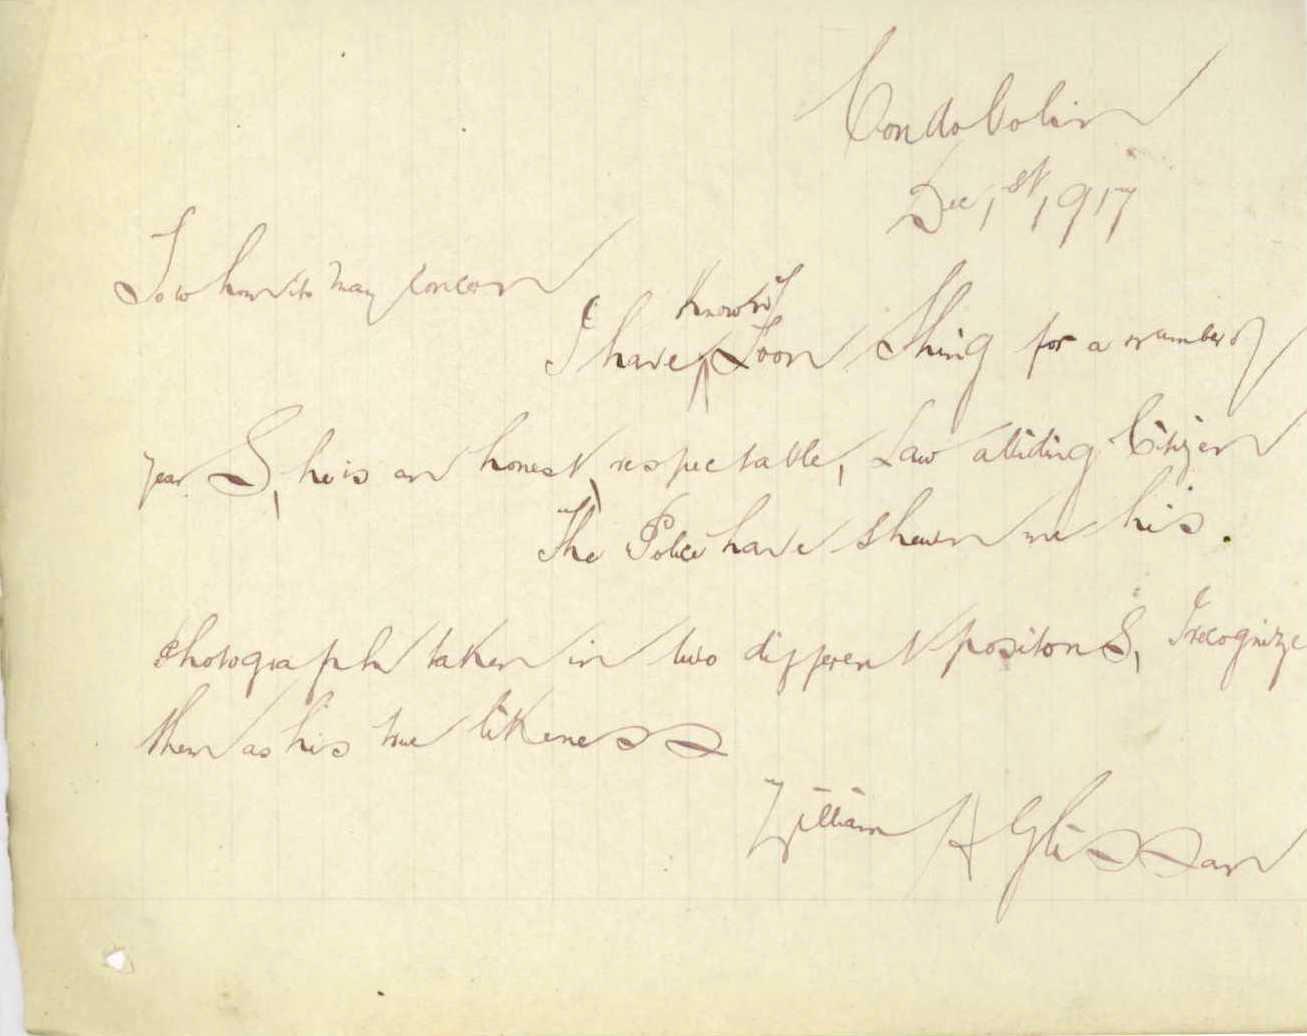 Condobolin
Dec 1st, 1917
To whom it may concern
I have known Toon Shing for a number of
years, he is an honest, respectable, Law abiding Citizen
The Police have shewn me his.
Photograph taken in two different positons, I recognize
them as his true likeness
William A Glisson